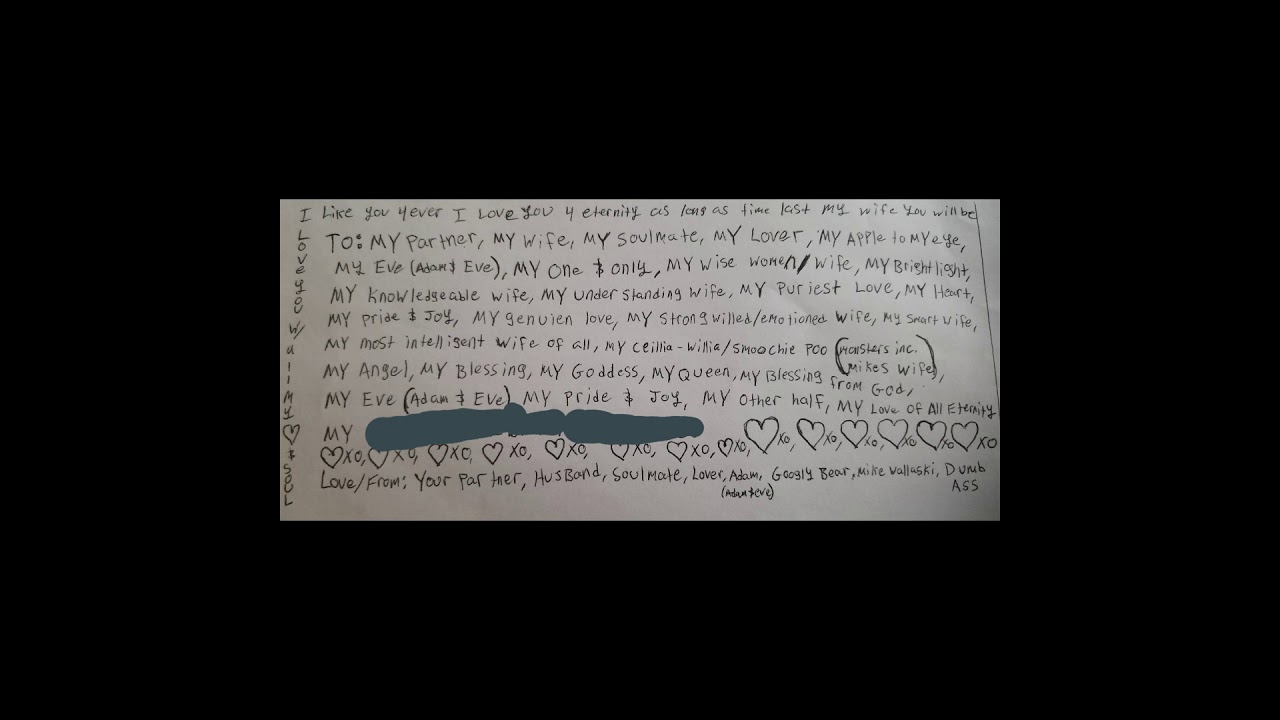 I Like you 4ever I Love you 4 eternity as long as time last my wife you will be
I Love you w/ all my ♡ $ soul
TO: MY Partner, MY Wife, MY Soulmate, MY Lover, MY Apple to MY eye,
MY Eve (Adam $ Eve), MY One $ only, MY wise women/wife, MY Brightlight,
MY knowledgeable wife, MY understanding wife, MY Puriest Love, MY Heart,
MY pride $ Joy, MY genuien love, MY Strong willed/emotioned wife, MY Smart wife,
MY most intelligent wife of all, MY ceillia-willia/Smoochie Poo (monsters inc. Mikes wife),
MY Angel, MY Blessing, MY Goddess, MY Queen, MY Blessing from God,
MY Eve (Adam $ Eve) MY Pride $ Joy, MY Other half, MY Love of All Eternity
MY ♡xo, ♡xo, ♡xo, ♡xo, ♡xo, ♡xo
♡xo, ♡xo, ♡xo, ♡xo, ♡xo, ♡xo, ♡xo, ♡xo,
Love/From: Your Partner, HusBand, Soulmate, Lover, Adam, Googly Bear, Mike wallaski, Dumb ASS
(Adam $ eve)